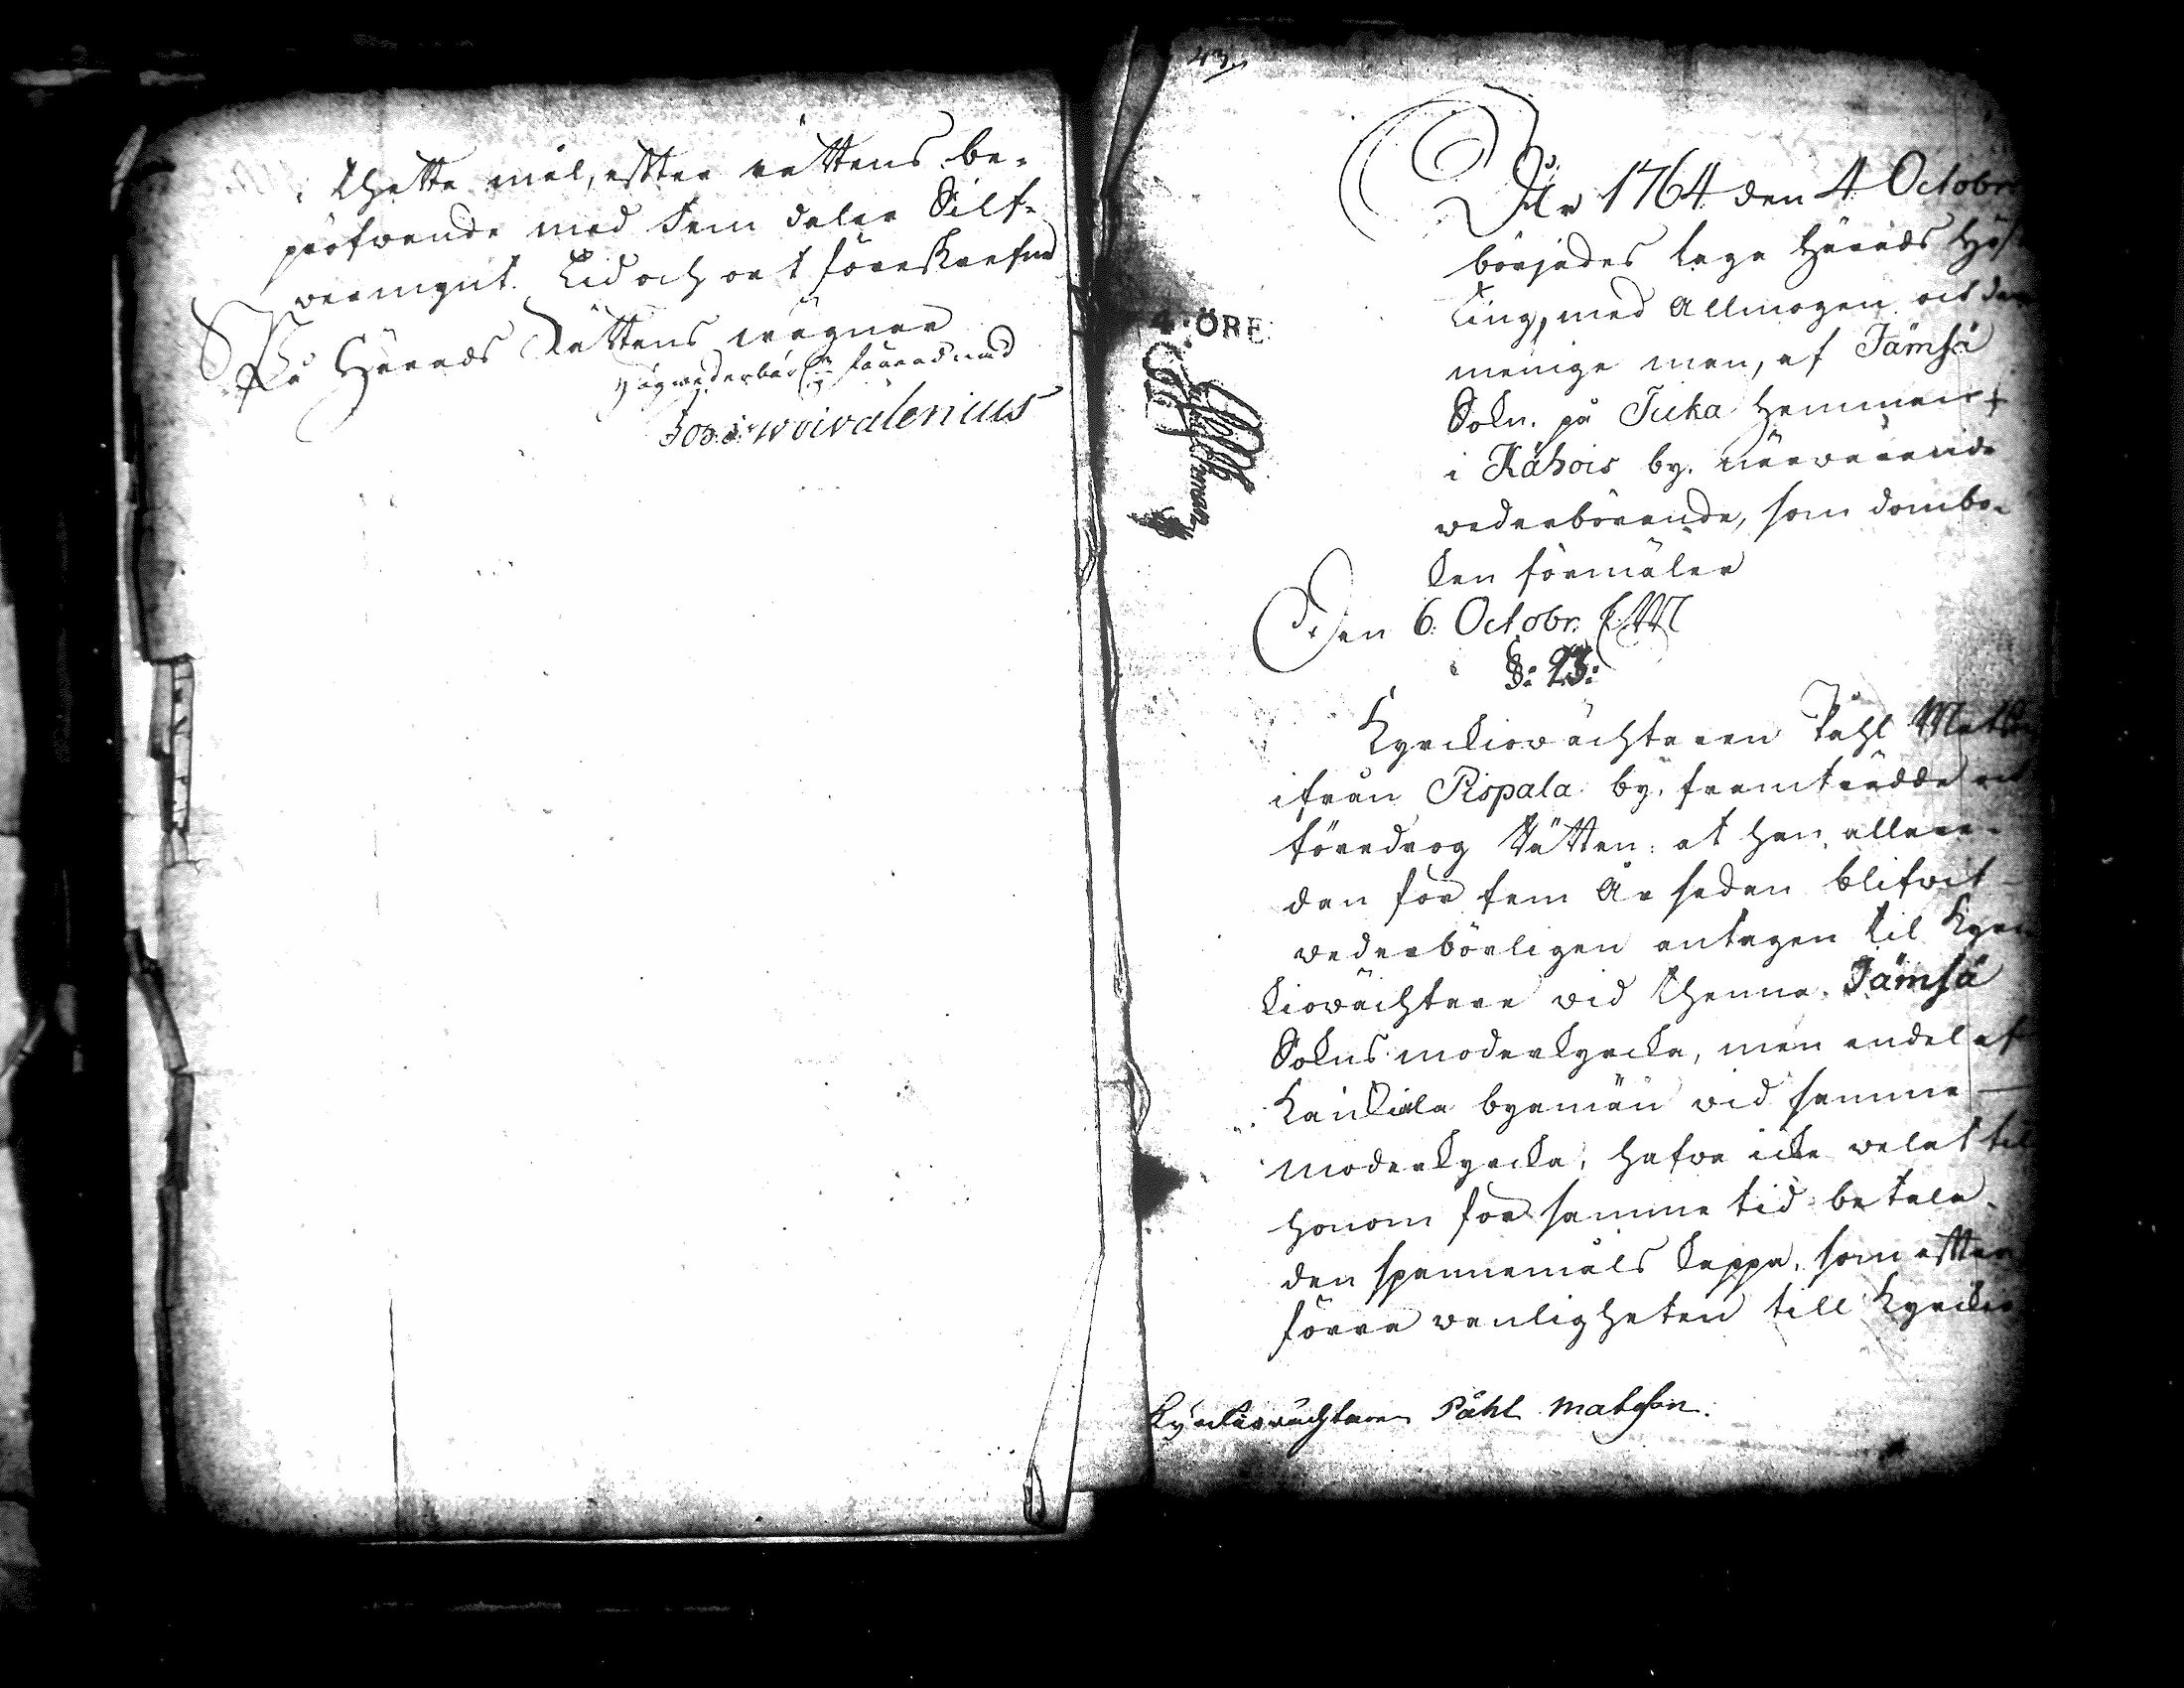 i thetta mål, efter rättens be-
pröfvande med fem daler Silf-
vermynt. Tid och ort föreskrefne
På Härads Rättens wägnar
43.
År 1764 den 4 Octobr
börjades laga Härads Höst
Ting, med Allmogen och den
menige man, af Jämsä
Sokn. på Juka Hemman
i Kähois by. närwarande
wederbörande, som dombo-
ken förmäler
4. ÖRE
Den 6. Octobr.
§: 93:
Kyrckiowächtaren Påhl Mats
ifrån Pispala by. framträdde och
föredrog Rätten: at han allare-
dan för fem År sedan blifvit
wederbörligen antagen til Kyrc
kiowächtare wid thenna Jämsä
Sokns moderkyrcka, men endel af
Kaickiala byamän wid samma
moderkyrcka, hafwa icke welat til
honom för samma tid betala
den spannemåls kappa, som efter
förra wanligheten till Kyrckio
Kyrckiowächtaren Påhl Matsson.